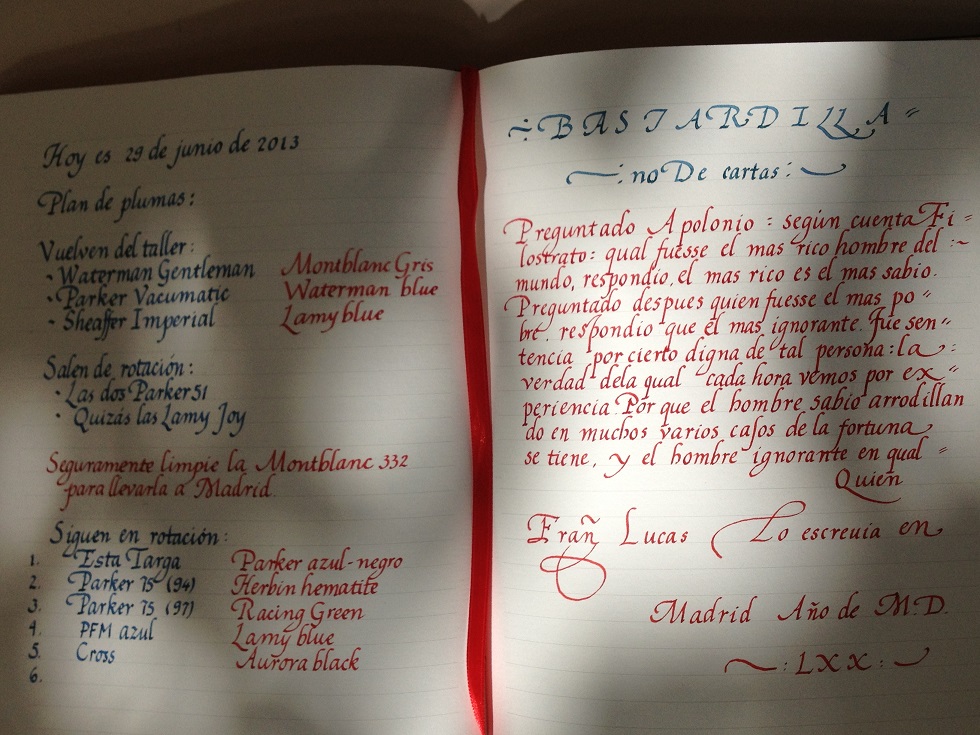 Hoy es 29 de junio de 2013
Plan de plumas:
Vuelven del taller:
· Waterman Gentleman Montblanc Gris
· Parker Vacumatic Waterman blue
· Sheaffer Imperial Lamy blue
Salen de rotación:
· Las dos Parker 51
· Quizás las Lamy Joy
Seguramente limpie la Montblanc 332
para llevarla a Madrid.
Siguen en rotación:
1. Esta Targa Parker azul-negro
2. Parker 75 (94) Herbin hematite
3. Parker 75 (97) Racing Green
4. PFM azul Lamy blue
5. Cross Aurora black
6.
BASTARDILLA
: no De cartas:
Preguntado Apolonio: según cuenta Fi=
lostrato: qual fuesse el mas rico hombre del :~
mundo, respondio, el mas rico es el mas sabio.
Preguntado despues quien fuesse el mas po=
bre, respondio que el mas ignorante. fue sen=
tencia por cierto digna de tal persona: la :
verdad dela qual cada hora vemos por ex=
periencia. Por que el hombre sabio arrodillan
do en muchos varios casos de la fortuna
se tiene, y el hombre ignorante en qual=
Quien
Frañ Lucas Lo escreuia en
Madrid Año de M.D.
: LXX :